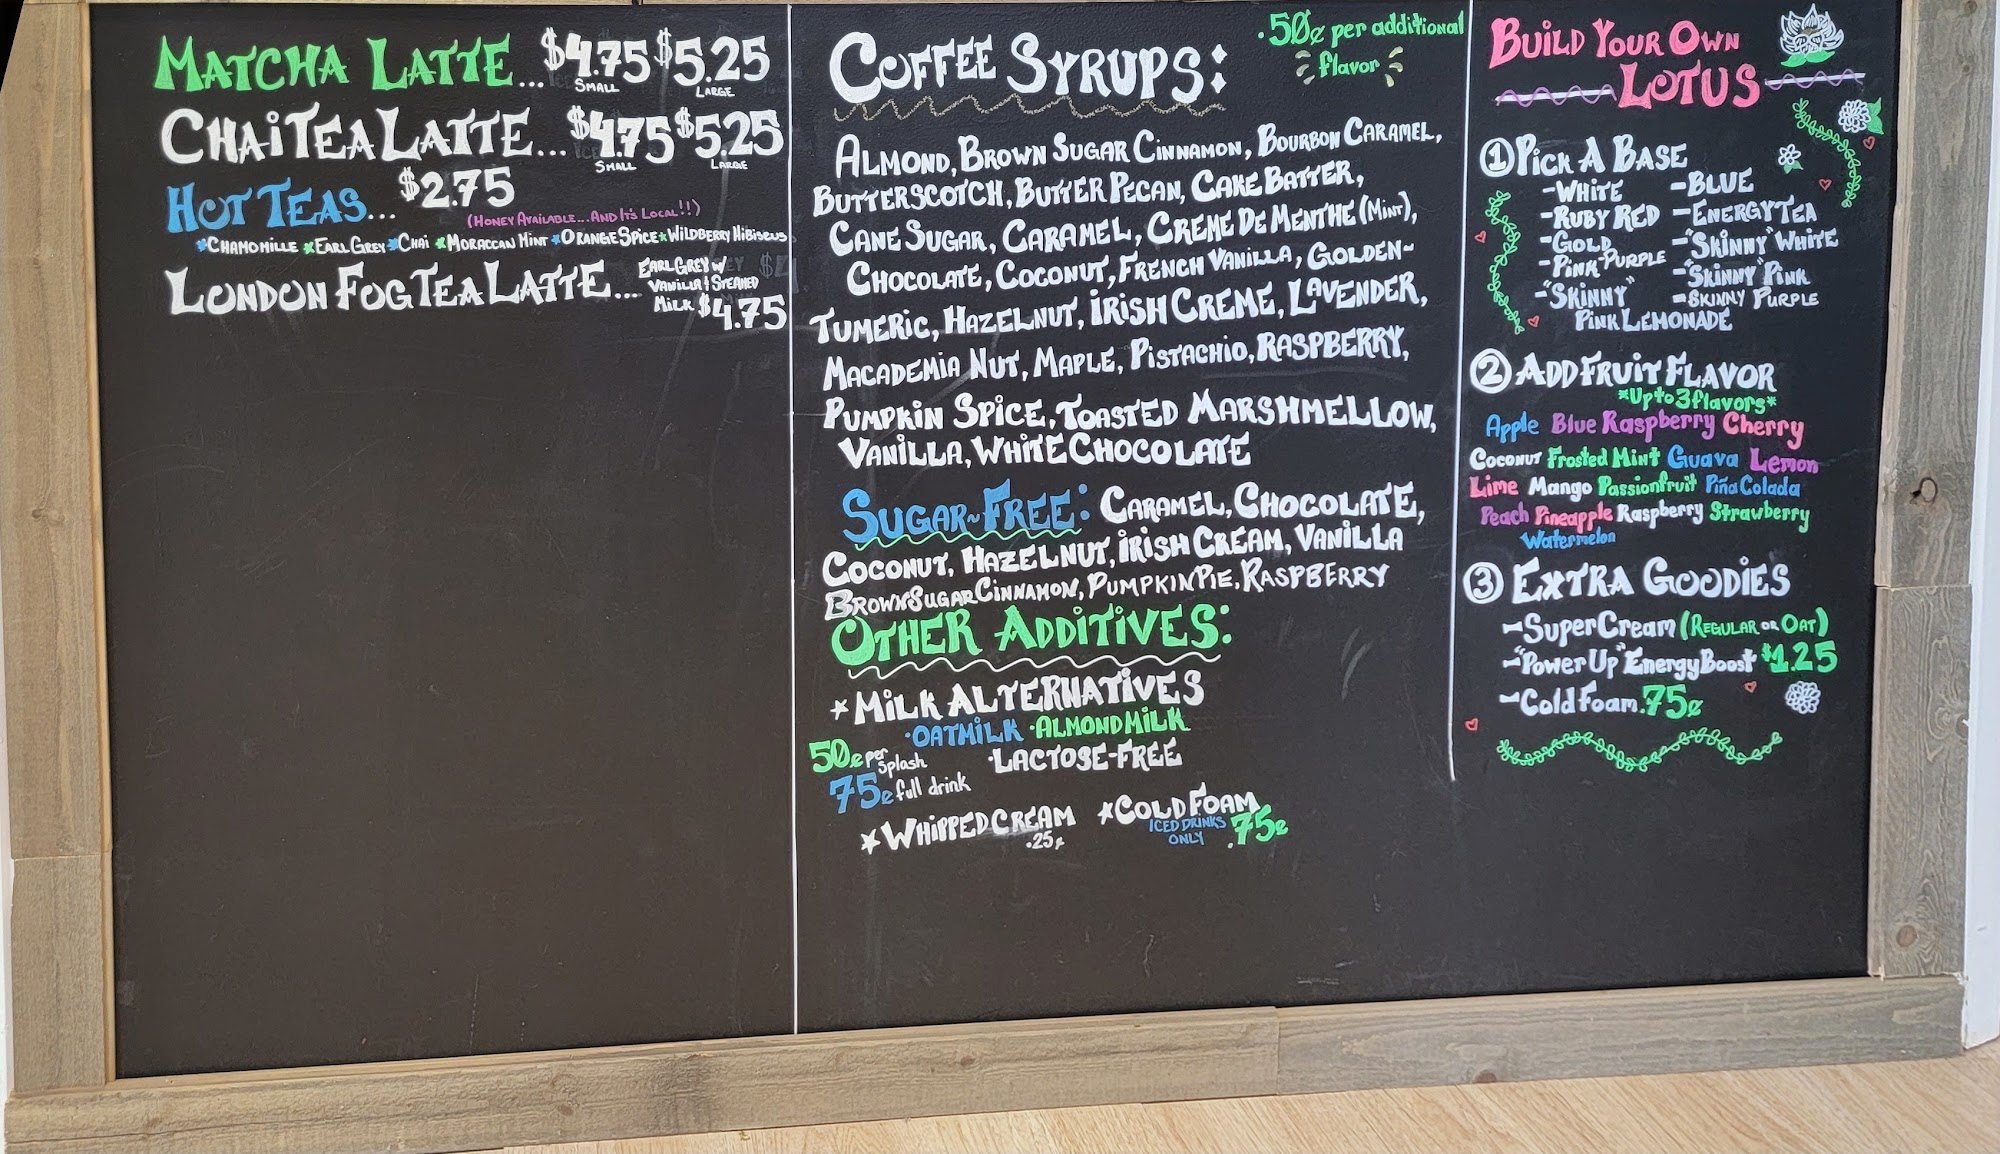 MATCHA LATTE... $4.75 $5.25
SMALL LARGE
CHAI TEA LATTE... $4.75 $5.25
SMALL LARGE
HOT TEAS... $2.75
(HONEY AVAILABLE...AND IT'S LOCAL!!)
*CHAMOMILLE *EARL GREY *CHAI *MORACCAN MINT *ORANGE SPICE *WILDBERRY HIBISCUS
LONDON FOG TEA LATTE... EARL GREY W/
VANILLA & STEAMED
MILK $4.75
COFFEE SYRUPS:
.50¢ per additional
flavor
ALMOND, BROWN SUGAR CINNAMON, BOURBON CARAMEL,
BUTTERSCOTCH, BUTTER PECAN, CAKE BATTER,
CANE SUGAR, CARAMEL, CREME DE MENTHE (MINT),
CHOCOLATE, COCONUT, FRENCH VANILLA, GOLDEN-
TUMERIC, HAZELNUT, IRISH CREME, LAVENDER,
MACADEMIA NUT, MAPLE, PISTACHIO, RASPBERRY,
PUMPKIN SPICE, TOASTED MARSHMELLOW,
VANILLA, WHITE CHOCOLATE
SUGAR~FREE: CARAMEL, CHOCOLATE,
COCONUT, HAZELNUT, IRISH CREAM, VANILLA
BROWN SUGAR CINNAMON, PUMPKIN PIE, RASPBERRY
OTHER ADDITIVES:
*MILK ALTERNATIVES
·OATMILK ·ALMOND MILK
·LACTOSE-FREE
50¢ per splash
75¢ full drink
*WHIPPED CREAM
.25¢
*COLD FOAM
ICED DRINKS
ONLY .75¢
BUILD YOUR OWN
LOTUS
① PICK A BASE
-WHITE -BLUE
-RUBY RED -ENERGY TEA
-GOLD -"SKINNY" WHITE
-PINK-PURPLE -"SKINNY" PINK
-"SKINNY" -SKINNY PURPLE
PINK LEMONADE
② ADD FRUIT FLAVOR
*Up to 3 flavors*
Apple Blue Raspberry Cherry
Coconut Frosted Mint Guava Lemon
Lime Mango Passionfruit Piña Colada
Peach Pineapple Raspberry Strawberry
Watermelon
③ EXTRA GOODIES
-Super Cream (REGULAR OR OAT)
-"Power Up" Energy Boost $1.25
-Cold Foam .75¢